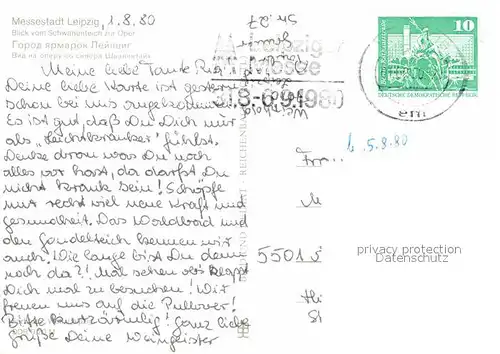 Messestadt Leipzig, 1.8.80
Blick vom Schwanenteich zur Oper
Город ярмарок Лейпциг
Вид на оперу со сквера Шванентайх
Meine liebe Tante
Deine liebe Karte ist gestern
schon bei uns angekommen.
Es ist gut, daß Du Dich nur
als „Leichtkranker" fühlst.
Denke dran was Du noch
alles vor hast, da darfst Du
nicht krank sein! Schöpfe
nur recht viel neue Kraft und
Gesundheit. Das Waldbad und
den Gondelteich kennen wir
auch. Wie lange bist Du denn
noch da?! Mal sehen ob's klappt
Dich mal zu besuchen! Wir
freuen uns auf die Pullover!
Bitte kurzärmlig! Ganz liebe
Grüße Deine
Leipziger
Messe
31.8.-6.9.1980
10
DEUTSCHE DEMOKRATISCHE REPUBLIK
5.8.80
Frau
5501
privacy protection
Datenschutz